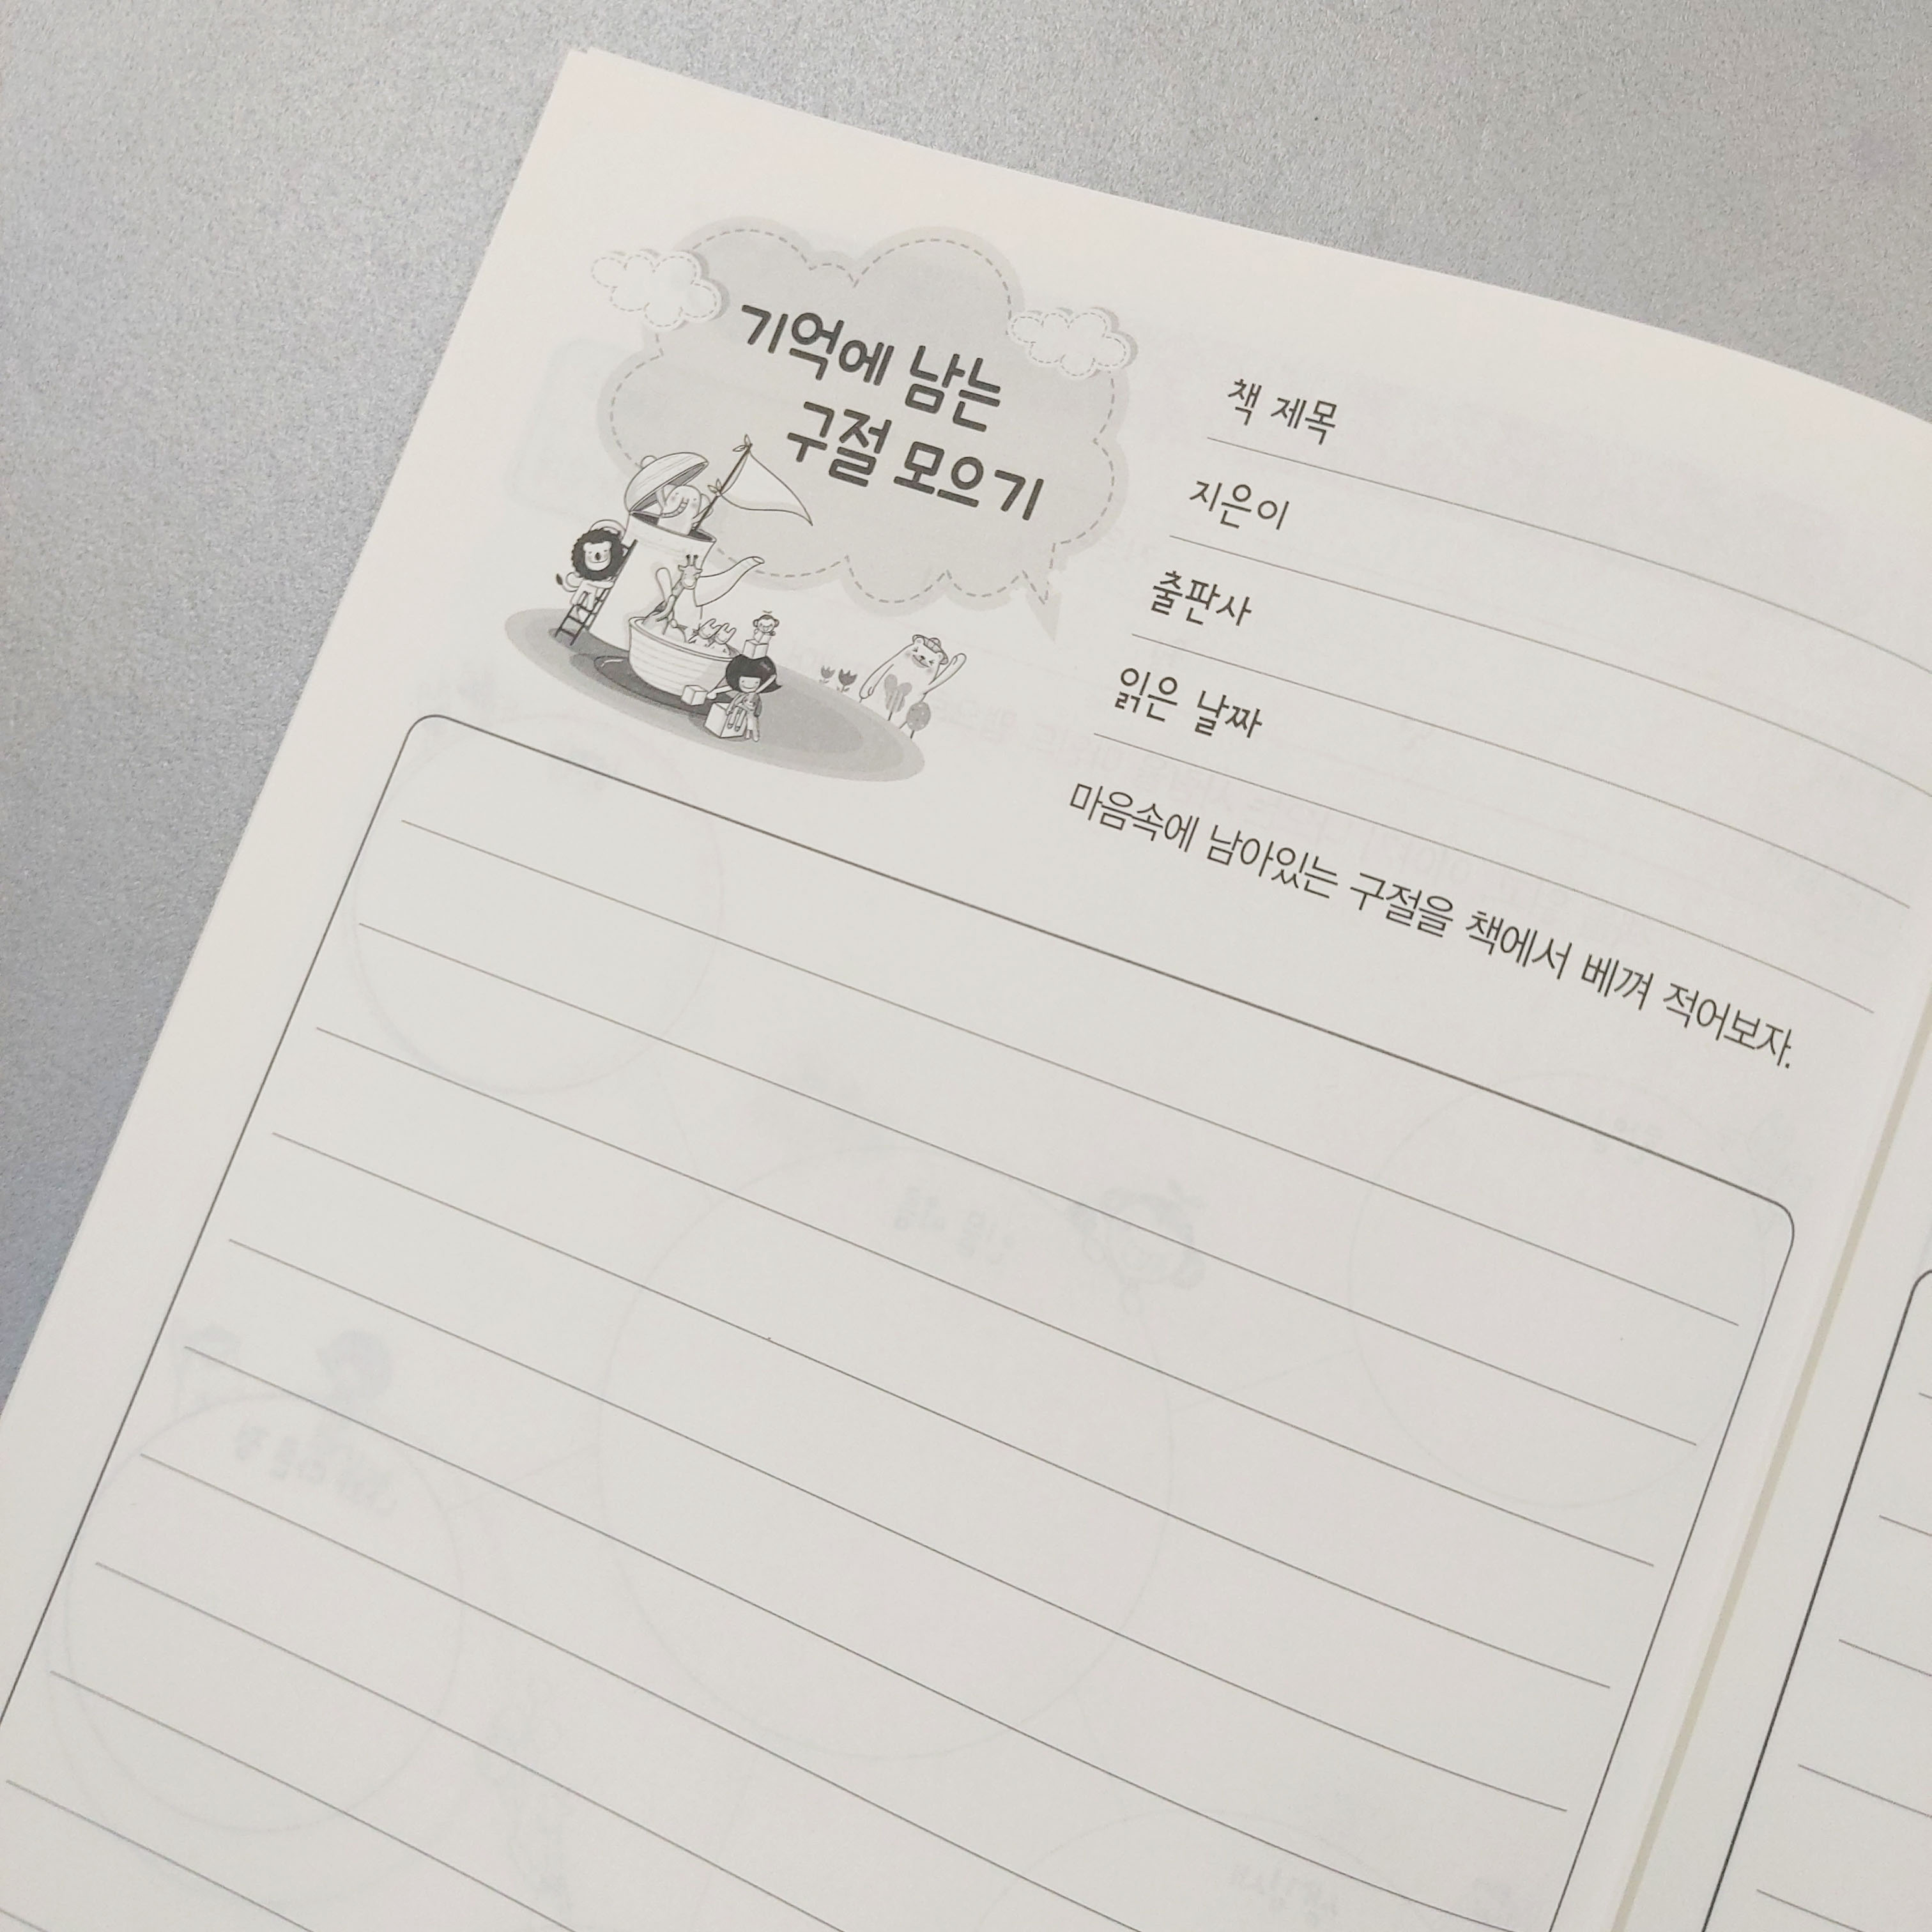 기억에 남는
구절 모으기
책 제목
지은이
출판사
읽은 날짜
마음속에 남아있는 구절을 책에서 베껴 적어보자.